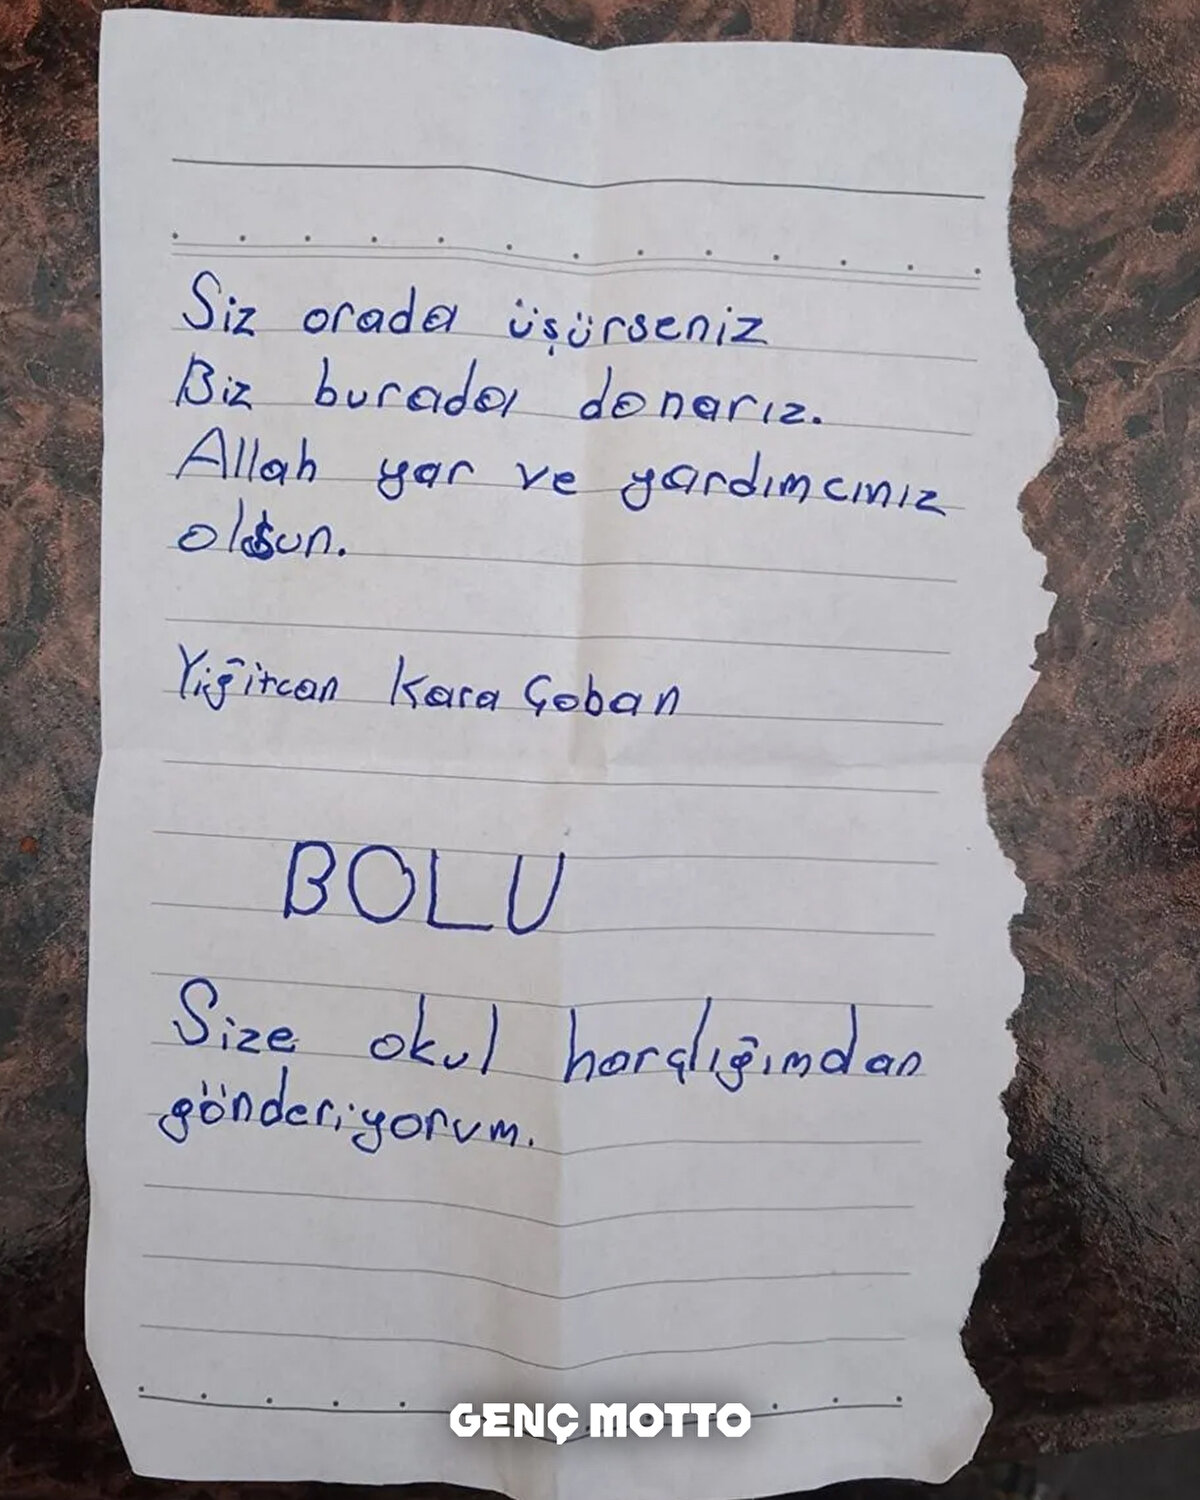 Siz orada üşürseniz
Biz burada donarız.
Allah yar ve yardımcınız
olsun.
Yiğitcan Kara Çoban
BOLU
Size okul harçlığımdan
gönderiyorum.
GENÇ MOTTO